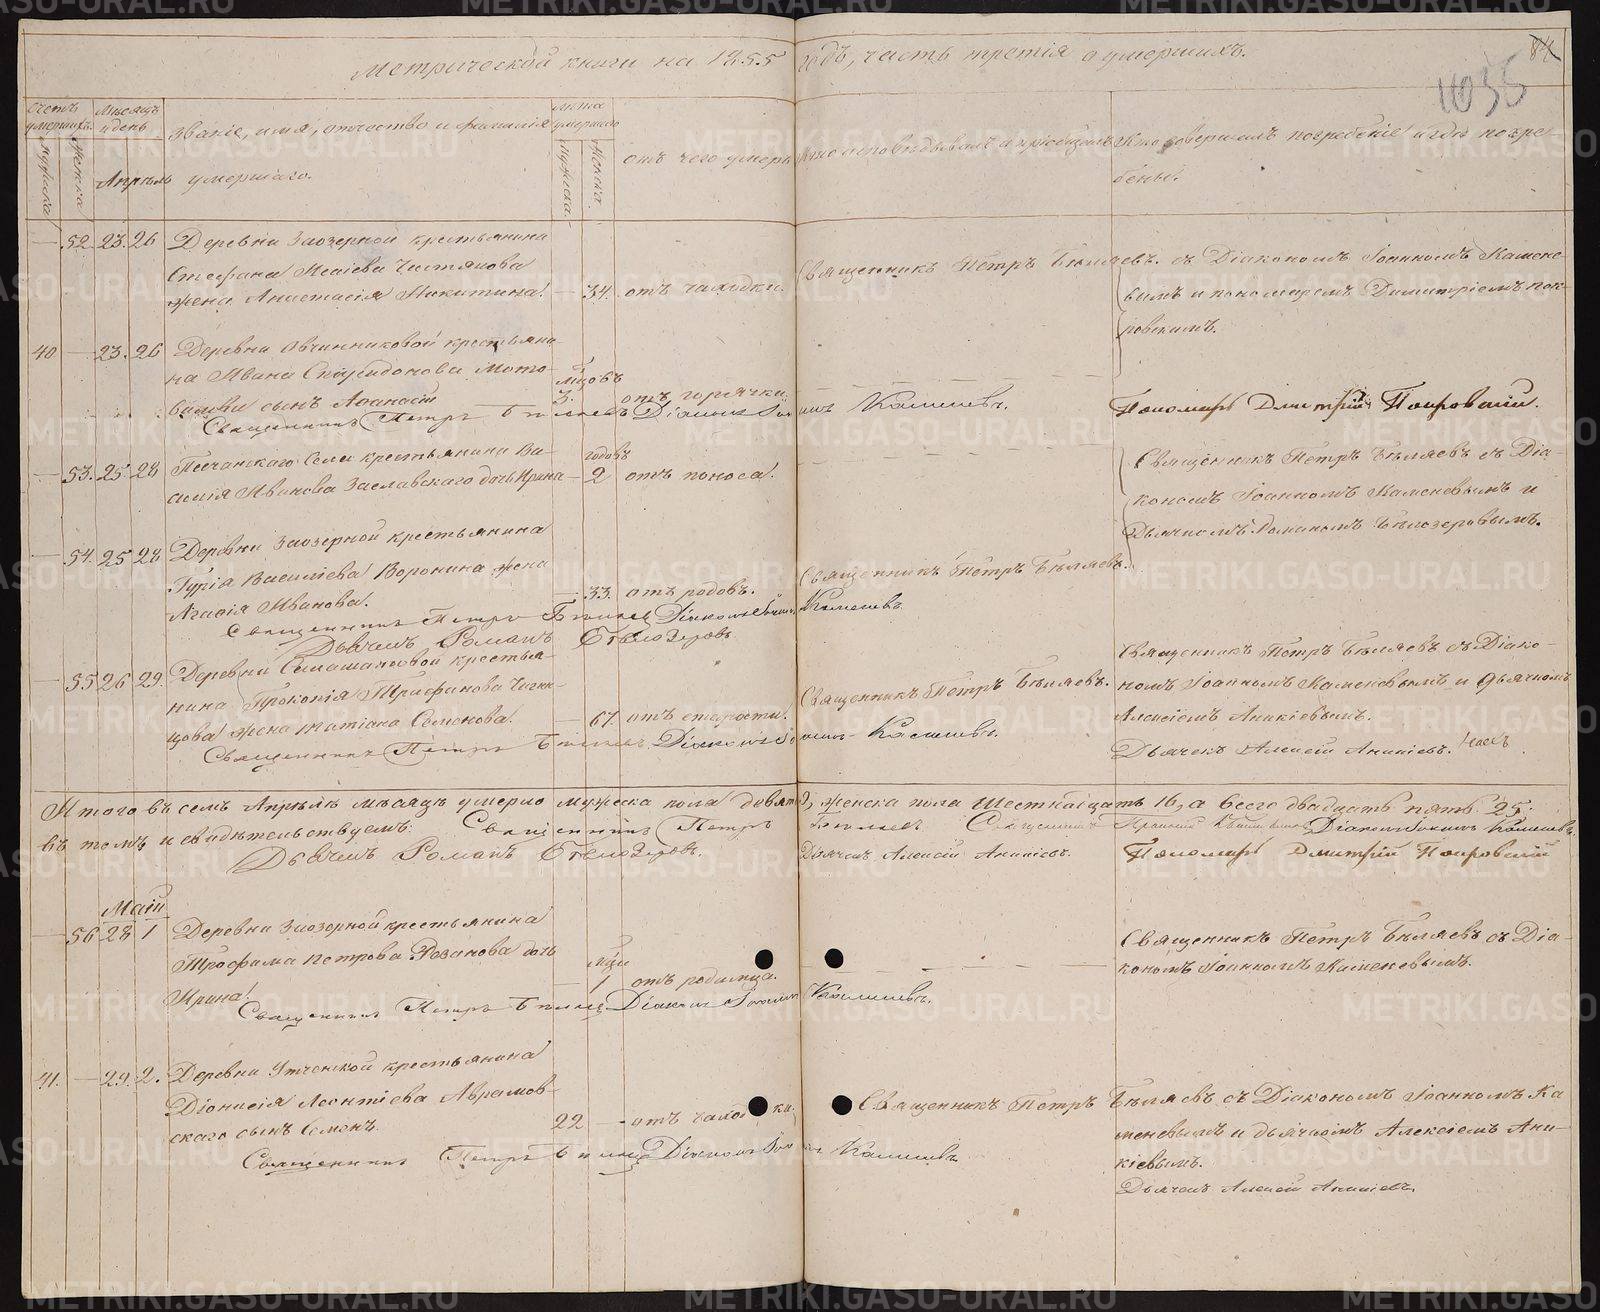 Метрической книги на 1855 годъ, часть третія о умершихъ.
84
1035
Счетъ умершихъ.
Мѣсяцъ и день
Званіе, имя, отчество и фамилія умершаго.
Лѣта умершаго
отъ чего умеръ
Кто исповѣдывалъ и пріобщалъ
Кто совершалъ погребеніе и гдѣ погребены.
Мужска
Женска
Апрѣль
Мужска.
Женска.
52. 23. 26 Деревни Заозерной крестьянина
Стефана Исаіева Чистякова
жена Анастасія Никитина. 34. отъ чахотки.
Священникъ Петръ Бѣляевъ. съ Діакономъ Іоанномъ Камене-
вымъ и пономаремъ Димитріемъ Пок-
ровскимъ.
40 23. 26 Деревни Овчинниковой крестьяни-
на Ивана Спиридонова Мото-
вилова сынъ Афанасій
мцовъ
3. отъ горячки.
Священникъ Петръ Бѣляевъ Діаконъ Іоаннъ Каменевъ.
Пономарь Дмитрій Покровскій.
53. 25. 28 Песчанскаго Села крестьянина Ва-
силія Иванова Заславскаго дочь Ирина
годовъ
2 отъ поноса.
Священникъ Петръ Бѣляевъ съ Діа-
кономъ Іоанномъ Каменевымъ и
Дьячкомъ Романомъ Бѣлозеровымъ.
54. 25 28 Деревни Заозерной крестьянина
Гурія Василіева Воронина жена
Агафія Иванова. 33. отъ родовъ.
Священникъ Петръ Бѣляевъ.
Священникъ Петръ Бѣляевъ Діаконъ Іоаннъ Каменевъ
Дьячекъ Романъ Бѣлозеровъ
55 26 29. Деревни крестья-
нина Прокопія Трифанова
жена Татіана Семенова. 67. отъ старости.
Священникъ Петръ Бѣляевъ.
Священникъ Петръ Бѣляевъ съ Діако-
номъ Іоанномъ Каменевымъ и Дьячкомъ
Алексіемъ Аникіевымъ.
Священникъ Петръ Бѣляевъ Діаконъ Іоаннъ Каменевъ.
Дьячекъ Алексѣй Аникіевъ.
Итого въ семъ Апрѣлѣ мѣсяцѣ умерло мужеска пола девять 9, женска пола Шестнадцать 16, а всего двадцать пять 25.
въ томъ и свидѣтельствуемъ: Священникъ Петръ Бѣляевъ Священникъ Діаконъ Іоаннъ Каменевъ.
Дьячекъ Романъ Бѣлозеровъ. Дьячекъ Алексѣй Аникіевъ. Пономарь Дмитрій Покровскій
Маій
56 28 1 Деревни Заозорной крестьянина
Трофима Петрова Розанова дочь
Ирина.
мца
1 отъ родимца.
Священникъ Петръ Бѣляевъ съ Діа-
кономъ Іоанномъ Каменевымъ.
Священникъ Петръ Бѣляевъ Діаконъ Іоаннъ Каменевъ.
41. 29. 2. Деревни Утченской крестьянина
Діонисія Леонтіева Аврамов-
скаго сынъ Семенъ. 22 отъ чахотки.
Священникъ Петръ Бѣляевъ съ Діакономъ Іоанномъ Ка
меневымъ и дьячкомъ Алексіемъ Ани-
кіевымъ.
Священникъ Петръ Бѣляевъ Діаконъ Іоаннъ Каменевъ
Дьячекъ Алексѣй Аникіевъ.
METRIKI.GASO-URAL.RU